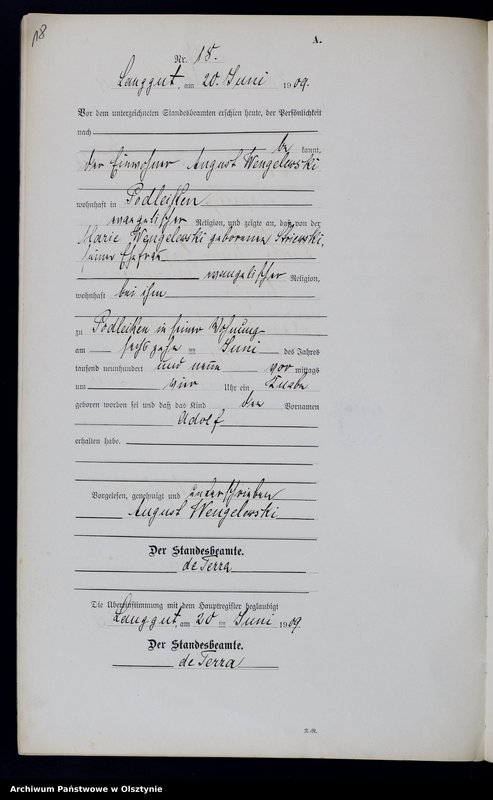 18
A.
Nr. 18.
Langgut, am 20. Juni 1909.
Vor dem unterzeichneten Standesbeamten erschien heute, der Persönlichkeit
nach
be kannt,
der Einwohner August Wengelewski
wohnhaft in Podleiken
evangelischer Religion, und zeigte an, daß von der
Marie Wengelewski geborenen
seiner Ehefrau
evangelischer Religion,
wohnhaft bei ihm
zu Podleiken in seiner Wohnung
am sechszehn ten Juni des Jahres
tausend neunhundert und neun vor mittags
um vier Uhr ein Knabe
geboren worden sei und daß das Kind den Vornamen
Adolf
erhalten habe.
Vorgelesen, genehmigt und unterschrieben
August Wengelewski
Der Standesbeamte.
de Terra
Die Übereinstimmung mit dem Hauptregister beglaubigt
Langgut, am 20 ten Juni 1909.
Der Standesbeamte.
de Terra
Archiwum Państwowe w Olsztynie